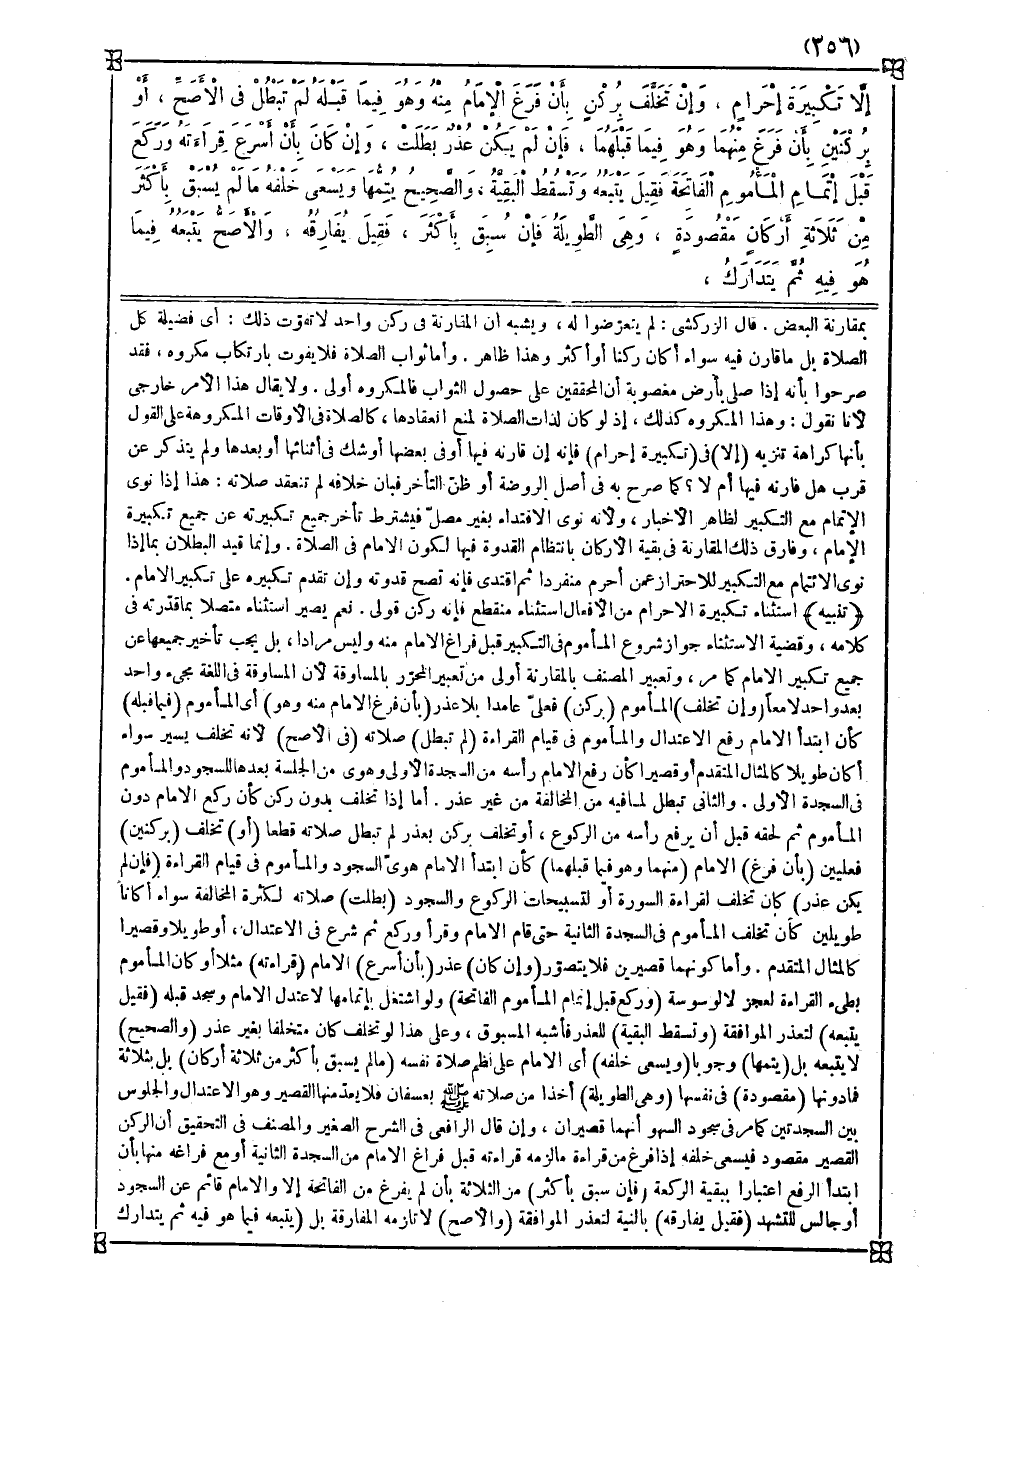 (٢٥٦)
إِلَّا تَكْبِيرَةَ إِحْرَامٍ ، وَإِنْ تَخَلَّفَ بِرُكْنٍ بِأَنْ فَرَغَ الْإِمَامُ مِنْهُ وَهُوَ فِيمَا قَبْلَهُ لَمْ تَبْطُلْ فِى الْأَصَحِّ ، أَوْ
بِرُكْنَيْنِ بِأَنْ فَرَغَ مِنْهُمَا وَهُوَ فِيمَا قَبْلَهُمَا ، فَإِنْ لَمْ يَكُنْ عُذْرٌ بَطَلَتْ ، وَإِنْ كَانَ بِأَنْ أَسْرَعَ قِرَاءَتَهُ وَرَكَعَ
قَبْلَ إِتْمَامِ الْمَأْمُومِ الْفَاتِحَةَ فَقِيلَ يَتْبَعُهُ وَتَسْقُطُ الْبَقِيَّةُ ، وَالصَّحِيحُ يُتِمُّهَا وَيَسْعَى خَلْفَهُ مَا لَمْ يُسْبَقْ بِأَكْثَرَ
مِنْ ثَلَاثَةِ أَرْكَانٍ مَقْصُودَةٍ ، وَهِىَ الطَّوِيلَةُ فَإِنْ سُبِقَ بِأَكْثَرَ ، فَقِيلَ يُفَارِقُهُ ، وَالْأَصَحُّ يَتْبَعُهُ فِيمَا
هُوَ فِيهِ ثُمَّ يَتَدَارَكُ ،
بمقارنة البعض . قال الزركشى : لم يتعرضوا له ، ويشبه أن المقارنة فى ركن واحد لا تفوّت ذلك : أى فضيلة كل
الصلاة بل ما قارن فيه سواء أكان ركنا أو أكثر وهذا ظاهر . وأما ثواب الصلاة فلا يفوت بارتكاب مكروه ، فقد
صرحوا بأنه إذا صلى بأرض مغصوبة أن المحققين على حصول الثواب فالمكروه أولى . ولا يقال هذا الأمر خارجى
لأنا نقول : وهذا المكروه كذلك ، إذ لو كان لذات الصلاة لمنع انعقادها ، كالصلاة فى الأوقات المكروهة على القول
بأنها كراهة تنزيه (إلا) فى (تكبيرة إحرام) فإنه إن قارنه فيها أو فى بعضها أو شك فى أثنائها أو بعدها ولم يتذكر عن
قرب هل قارنه فيها أم لا ؟ كما صرح به فى أصل الروضة أو ظنّ التأخر فبان خلافه لم تنعقد صلاته : هذا إذا نوى
الإتمام مع التكبير لظاهر الأخبار ، ولأنه نوى الاقتداء بغير مصلّ فيشترط تأخر جميع تكبيرته عن جميع تكبيرة
الإمام ، وفارق ذلك المقارنة فى بقية الأركان بانتظام القدوة فيها لكون الامام فى الصلاة . وإنما قيد البطلان بما إذا
نوى الائتمام مع التكبير للاحتراز عمن أحرم منفردا ثم اقتدى فإنه تصح قدوته وإن تقدم تكبيره على تكبير الامام .
﴿تنبيه﴾ استثناء تكبيرة الاحرام من الأفعال استثناء منقطع فإنه ركن قولى . نعم يصير استثناء متصلا بما قدّرته فى
كلامه ، وقضية الاستثناء جواز شروع المأموم فى التكبير قبل فراغ الامام منه وليس مرادا ، بل يجب تأخير جميعها عن
جميع تكبير الامام كما مر ، وتعبير المصنف بالمقارنة أولى من تعبير المحرّر بالمساوقة لأن المساوقة فى اللغة مجىء واحد
بعد واحد لا معا (وإن تخلف) المأموم (بركن) فعلىّ عامدا بلا عذر (بأن فرغ الامام منه وهو) أى المأموم (فيما قبله)
كأن ابتدأ الامام رفع الاعتدال والمأموم فى قيام القراءة (لم تبطل) صلاته (فى الأصح) لأنه تخلف يسير سواء
أكان طويلا كالمثال المتقدم أو قصيرا كأن رفع الامام رأسه من السجدة الأولى وهوى من الجلسة بعدها للسجود والمأموم
فى السجدة الأولى . والثانى تبطل لما فيه من المخالفة من غير عذر . أما إذا تخلف بدون ركن كأن ركع الامام دون
المأموم ثم لحقه قبل أن يرفع رأسه من الركوع ، أو تخلف بركن بعذر لم تبطل صلاته قطعا (أو) تخلف (بركنين)
فعليين (بأن فرغ) الامام (منهما وهو فيما قبلهما) كأن ابتدأ الامام هوىّ السجود والمأموم فى قيام القراءة (فإن لم
يكن عذر) كأن تخلف لقراءة السورة أو لتسبيحات الركوع والسجود (بطلت) صلاته لكثرة المخالفة سواء أكانا
طويلين كأن تخلف المأموم فى السجدة الثانية حتى قام الامام وقرأ وركع ثم شرع فى الاعتدال ، أو طويلا وقصيرا
كالمثال المتقدم . وأما كونهما قصيرين فلا يتصوّر (وإن كان) عذر (بأن أسرع) الامام (قراءته) مثلا أو كان المأموم
بطىء القراءة لعجز لا لوسوسة (وركع قبل إتمام المأموم الفاتحة) ولو اشتغل بإتمامها لاعتدل الامام وسجد قبله (فقيل
يتبعه) لتعذر الموافقة (وتسقط البقية) للعذر فأشبه المسبوق ، وعلى هذا لو تخلف كان متخلفا بغير عذر (والصحيح)
لا يتبعه بل (يتمها) وجوبا (ويسعى خلفه) أى الامام على نظم صلاة نفسه (مالم يسبق بأكثر من ثلاثة أركان) بل بثلاثة
فمادونها (مقصودة) فى نفسها (وهى الطويلة) أخذا من صلاته ﷺ بعسفان فلا يعدّ منها القصير وهو الاعتدال والجلوس
بين السجدتين كما مر فى سجود السهو أنهما قصيران ، وإن قال الرافعى فى الشرح الصغير والمصنف فى التحقيق أن الركن
القصير مقصود فيسعى خلفه إذا فرغ من قراءة مالزمه قراءته قبل فراغ الامام من السجدة الثانية أو مع فراغه منها بأن
ابتدأ الرفع اعتبارا ببقية الركعة (فإن سبق بأكثر) من الثلاثة بأن لم يفرغ من الفاتحة إلا والامام قائم عن السجود
أو جالس للتشهد (فقيل يفارقه) بالنية لتعذر الموافقة (والأصح) لا تلزمه المفارقة بل (يتبعه فيما هو فيه ثم يتدارك